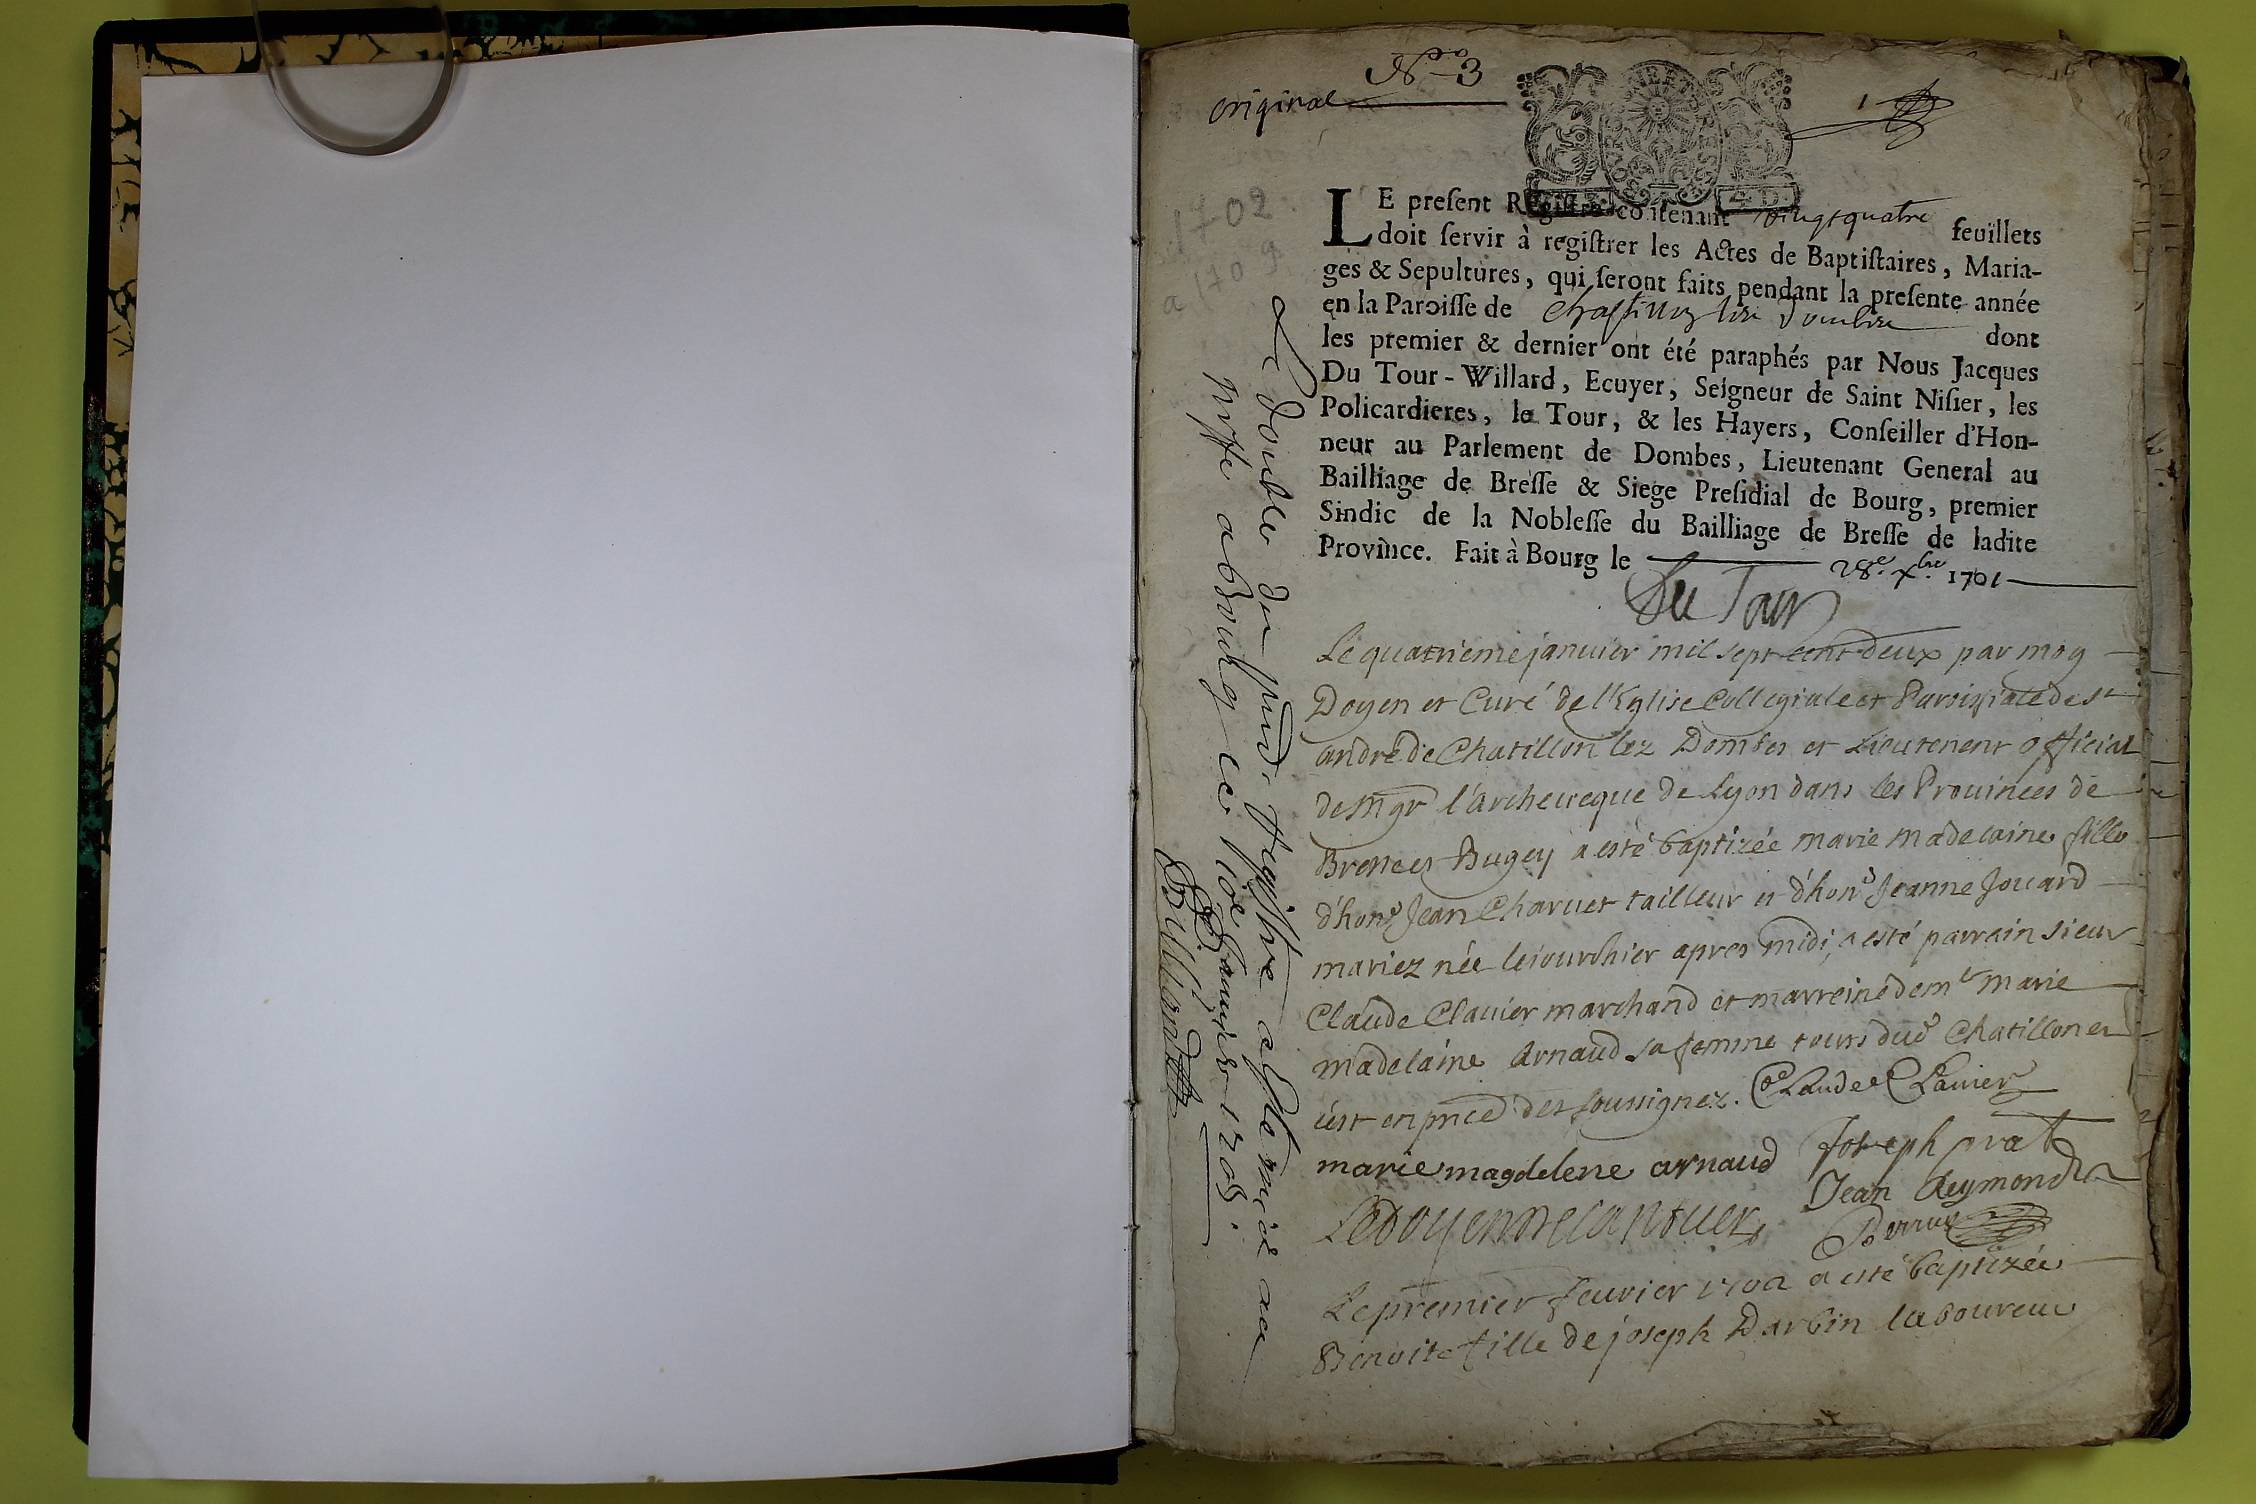 N° 3
original
1
1702
a 1709
LE preſent Regiſtre contenant vingt quatre feuïllets
doit ſervir à regiſtrer les Actes de Baptiſtaires, Maria-
ges & Sepultures, qui ſeront faits pendant la preſente année
en la Paroiſſe de Chastillon les Dombes dont
les premier & dernier ont été paraphés par Nous Jacques
Du Tour-Willard, Ecuyer, Seigneur de Saint Niſier, les
Policardieres, le Tour, & les Hayers, Conſeiller d'Hon-
neur au Parlement de Dombes, Lieutenant General au
Bailliage de Breſſe & Siege Preſidial de Bourg, premier
Sindic de la Nobleſſe du Bailliage de Breſſe de ladite
Province. Fait à Bourg le 28e. xbre 1701
Du Tour
Le quatrieme januier mil sept cent deux par moy
Doyen et Curé de l'Eglise Collegiale et Paroissiale de st
andré de Chatillon lez Dombes et Lieutenent official
de Mgr l'Archeveque de Lyon dans les Prouinces de
Bresse et Bugey a esté baptizée marie madelaine fille
d'hon^e Jean Charuet tailleur et d'hon^e Jeanne Jouard
mariez née le jour d'hier apres midi, a esté parrain sieur
Claude Clauier marchand et marreine dem^lle marie
madelaine Arnaud sa femme tous dud Chatillon et
c'est en pnce des soussignez. Claude Clauier
marie magdelene arnaud Joseph prat
Jean Reymond
Ledoyen Perruq
Le premier feurier 1702 a esté baptizée
Benoite fille de joseph Darbin laboureur
Le double du pnt Registre a esté mis au
Greffe a Bourg ce Janvier 1703.